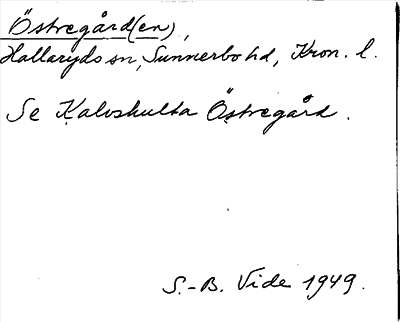 Östregård(en),
Hallaryds sn, Sunnerbo hd, Kron. l.
Se Kalvshulta Östregård.
S.-B. Vide 1949.